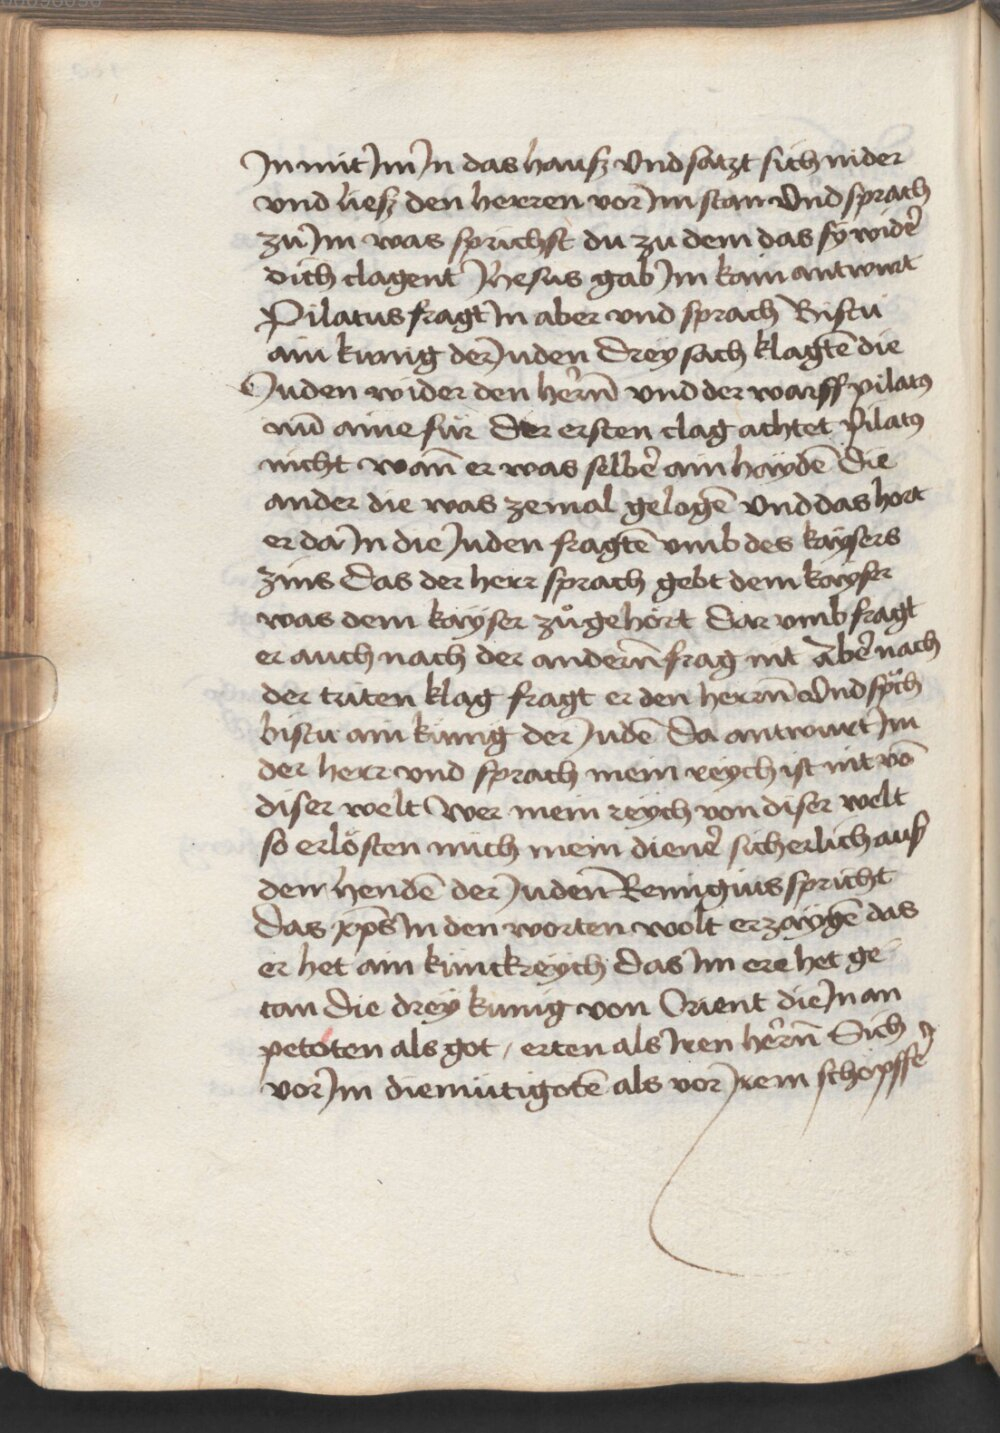 In mit Im In das hausz vnd satzt sich nider
vnd liesz den herren vor Im stan vnd sprach
zů Im was sprichst du zu dem das sy widẽ
dich clagent Jhesus gab Im kain antwurt
Pilatus fragt In aber vnd sprach Bistu
ain kunig der Juden Drey sach klagtẽ die
Juden wider den herñ vnd der warff pilatꝰ
nũ aine für Der ersten clag achtet Pilatꝰ
nicht wañ er was selbẽ ain haydẽ Die
ander die was zemal gelogẽ vnd das hort
er da In die Juden fragtẽ vmb des kaysers
zins Das der herr sprach gebt dem kayser
was dem kayser zůgehört Dar vmb fragt
er auch nach der anderñ frag nit Aber nach
der triten klag fragt er den herrñ vnd spͣch
bistu ain kunig der Judẽ Da antwurt Im
der herr vnd sprach mein reych ist nit võ
diser welt Wer mein reych von diser welt
so erlösten mich mein dienẽ sicherlich ausz
den hendẽ der Judeñ Remigius spricht
Das xp̃s In den worten wolt erzaygẽ das
er het ain kunckreych Das Im ere het ge
tan Die drey kunig von Orient die In an
petoten als got / erten als Iren herñ Sich
vor Im diemütigotẽ als vor Irem schöpffẽ